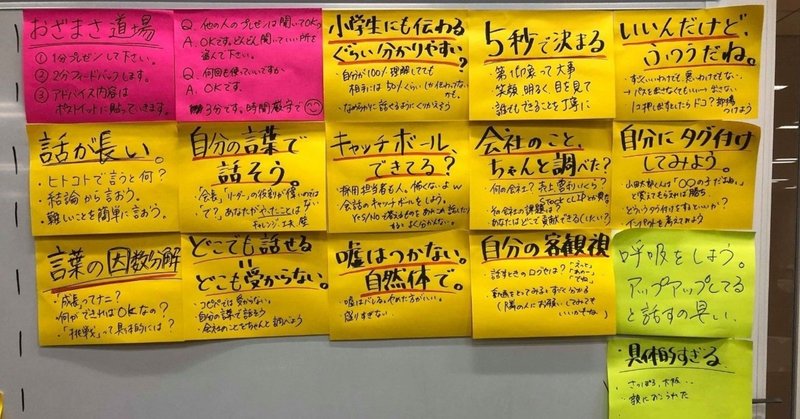 おざまさ道場
① 1分プレゼンして下さい。
② 2分フィードバックします。
③ アドバイス内容は
ポストイットに貼っていきます。
Q. 他の人のプレゼンは聞いてOK?
A. OKです。どんどん聞いていい所を
盗んで下さい。
Q. 何回も使っていいですか
A. OKです。
3分です。時間厳守で
小学生にも伝わる
ぐらい分かりやすい?
・自分が100%理解してても
相手には50%くらいしか伝わらない
かも。
・なめらかに話せるようにくりかえそう
5秒で決まる
・第一印象って大事
・笑顔、明るく、目を見て
・誰でもできることを丁寧に
いいんだけど、
ふつうだね。
・すごくいいわけでも悪いわけでもない
話が長い。
・ヒトコトで言うと何?
・結論から言おう。
・難しいことを簡単に言おう。
自分の言葉で
話そう。
・「で?」あなたがやったことは?
キャッチボール、
できてる?
・採用担当者も人。怖くないよw
・会話のキャッチボールをしよう。
会社のこと、
ちゃんと調べた?
・何の会社? 売上営利いくら?
・その会社の課題は?
・あなたはどこで貢献できる(したい)?
自分にタグ付け
してみよう。
・小田太郎くんは「〇〇の子だよね」
と覚えてもらえれば勝ち
・どうタグ付けするといいか?
言葉の因数分解
・「成長」ってナニ?
・何ができればOKなの?
・「挑戦」って具体的には?
どこでも話せる
||
どこも受からない。
・コピペでは受からない
・自分の言葉で話そう
・会社のことをちゃんと調べよう
嘘はつかない。
自然体で。
・嘘はバレる。やめた方がいい。
・盛りすぎない
自分の客観視
・話すときのログセは?
「えっと」
「あのー」
「でね」
・動画をとってみるとすぐ分かる
(隣の人にお願いしてみても
いいかもね)
呼吸をしよう。
アップアップしてる
と話すの臭い.
具体的すぎる